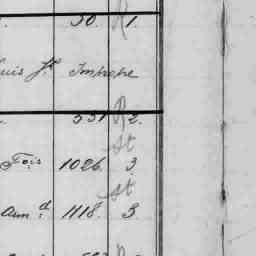 30. R 1.
uis Jr. Impasse
531 R 2.
St
Fois 1026. 3
St
Aun d 1118. 3